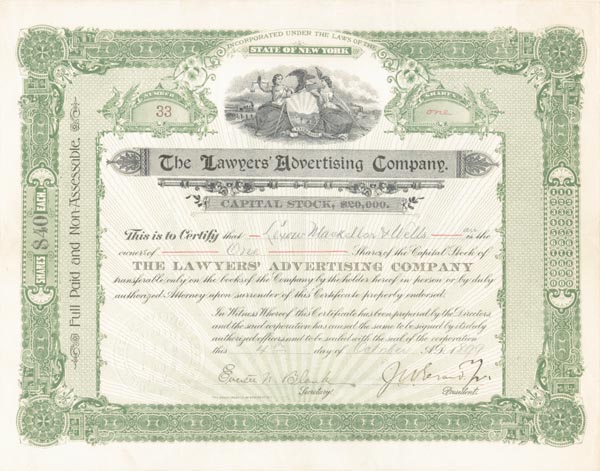 INCORPORATED UNDER THE LAWS OF THE
STATE OF NEW YORK
NUMBER
33
SHARES
one
The Lawyers' Advertising Company.
CAPITAL STOCK, $20,000.
This is to Certify that Mackellar & Wells are is the
owner of One Shares of the Capital Stock of
THE LAWYERS' ADVERTISING COMPANY
transferable only on the books of the Company by the holder hereof in person or by duly
authorized Attorney upon surrender of this Certificate properly endorsed.
In Witness Whereof this Certificate has been prepared by the Directors
and the said corporation has caused the same to be signed by its duly
authorized officers and to be sealed with the seal of the corporation
this 4th day of October A.D. 1899
Secretary.
President.
Full Paid and Non-Assessable.
SHARES $40 EACH.